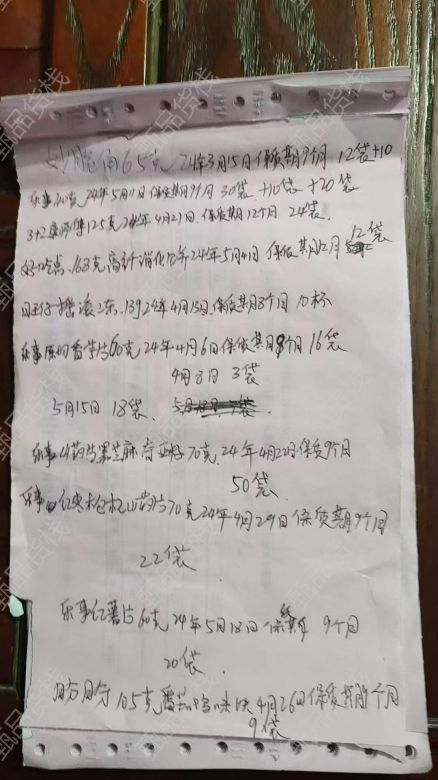 妙脆角65克 24年3月15日保质期9个月 12袋+10
乐事40克 24年5月11日保质期9个月 30袋 +10袋 +20袋
3+2 125克 24年4月21日.保质期12个月 24袋.
好吃点.163克高纤消化饼 24年5月4日 保质期12月 12袋
旺仔 24年4月15日.保质期8个月 10杯
乐事 薯片60克 24年4月6日保质期8个月 16袋
4月8日 3袋
5月15日 18袋
乐事山药片黑芝麻 70克.24年4月22日保质9个月
50袋.
乐事 山药片70克24年4月29日保质期9个月
22袋
乐事红薯片60克 24年5月18日保质期 9个月
20袋.
105克 味 4月26日保质期 个月
9袋
甄品货栈